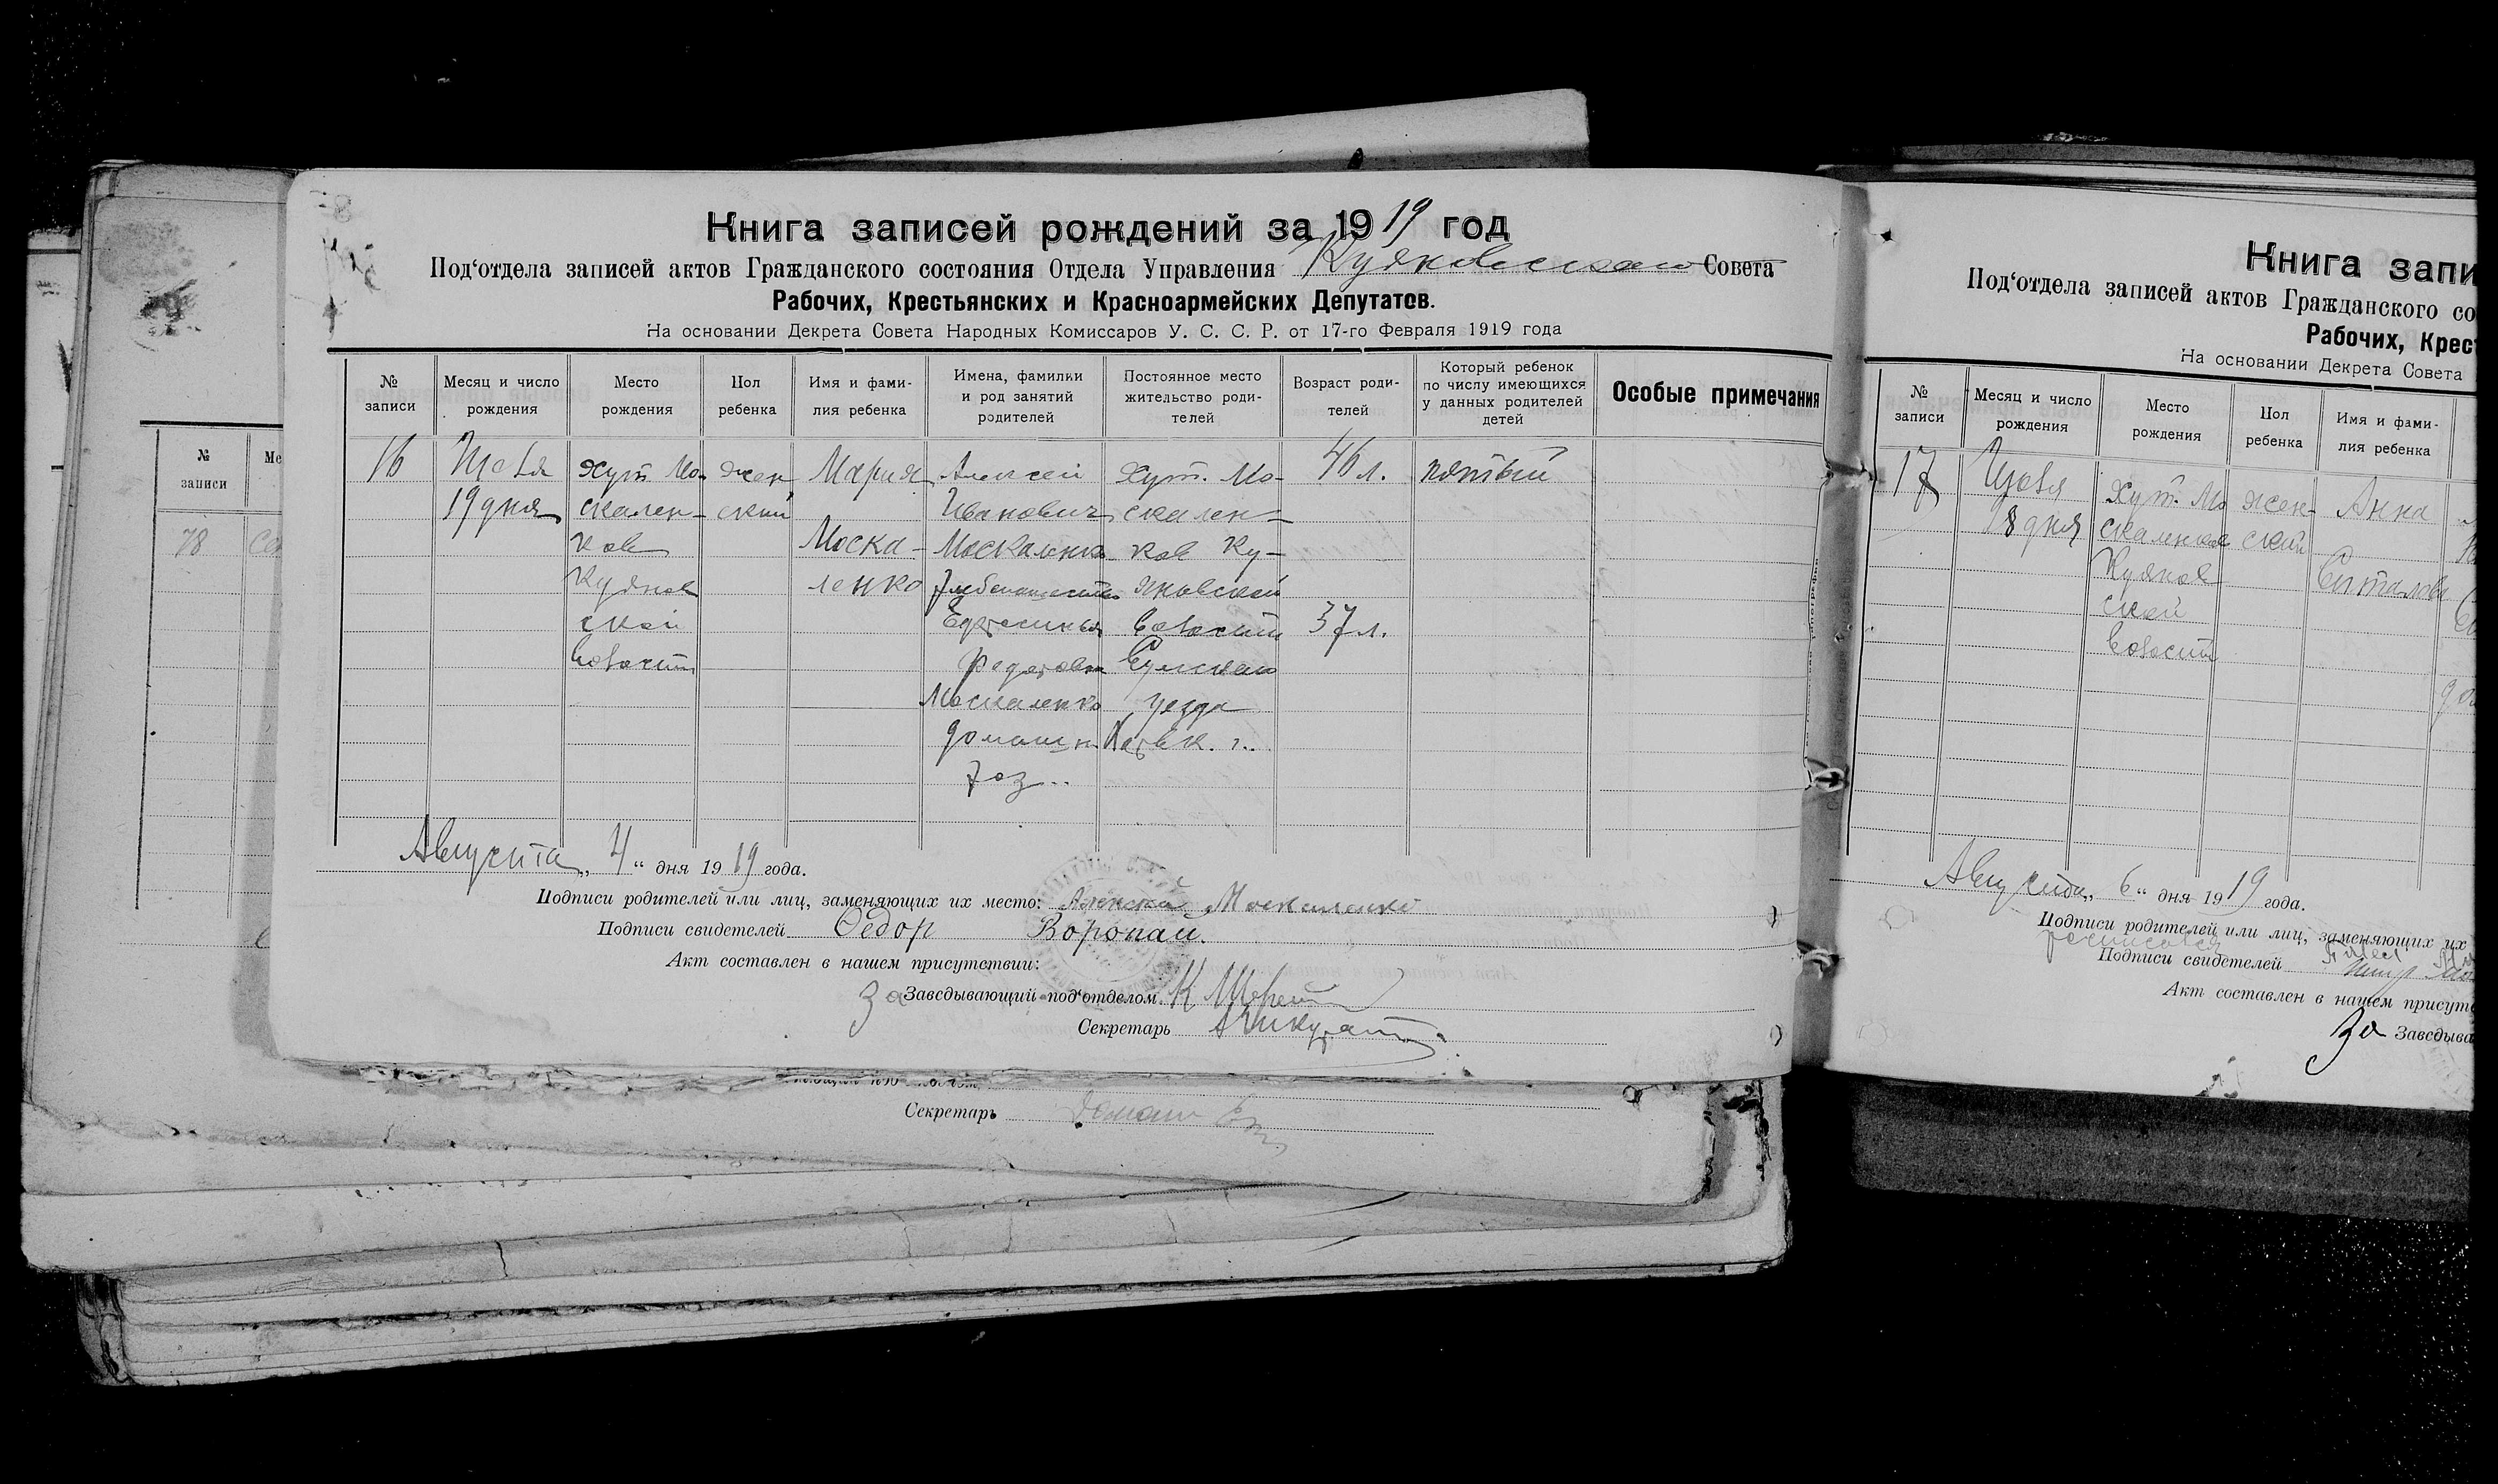 Книга записей рождений за 1919 год
Под‘отдела записей актов Гражданского состояния Отдела Управления Куяновского Совета
Рабочих, Крестьянских и Красноармейских Депутатов.
На основании Декрета Совета Народных Комиссаров У. С. С. Р. от 17-го Февраля 1919 года
№ записи
Месяц и число рождения
Место рождения
Пол ребенка
Имя и фами-
лия ребенка
Имена, фамилии
и род занятий
родителей
Постоянное место
жительство роди-
телей
Возраст роди-
телей
Который ребенок
по числу имеющихся
у данных родителей
детей
Особые примечания
16
Июля
19 дня
хут. Мо-
скален-
ков
Куянов
ской
волости
жен
ский
Мария
Моска-
ленко
Алексей
Иванович
Москаленко
хлебопашество
Ефросинья
Федоровна
Москаленко
домашн.
хоз..
хут. Мо-
скален-
ков Ку-
яновской
волости
Сумского
уезда
Харьк. г..
46 л.
37 л.
пятый
Августа „ 4 “ дня 1919 года.
Подписи родителей или лиц, заменяющих их место: Алексей Москаленко
Подписи свидетелей Федор Воропай.
Акт составлен в нашем присутствии:
За Заведывающий под‘отделом
Секретарь
Секретарь
№
записи
Ме
78
Сен
Книга запи
Под‘отдела записей актов Гражданского со
Рабочих, Крест
На основании Декрета Совета
№
записи
Месяц и число
рождения
Место
рождения
Пол
ребенка
Имя и фами-
лия ребенка
17
Июля
18 дня
хут. Мо
скаленков
Куянов
ской
волости
жен-
ский
Анна
Августа „ 6 “ дня 1919 года.
Подписи родителей или лиц, заменяющих их
Подписи свидетелей
Акт составлен в нашем присутс
За Заведыва